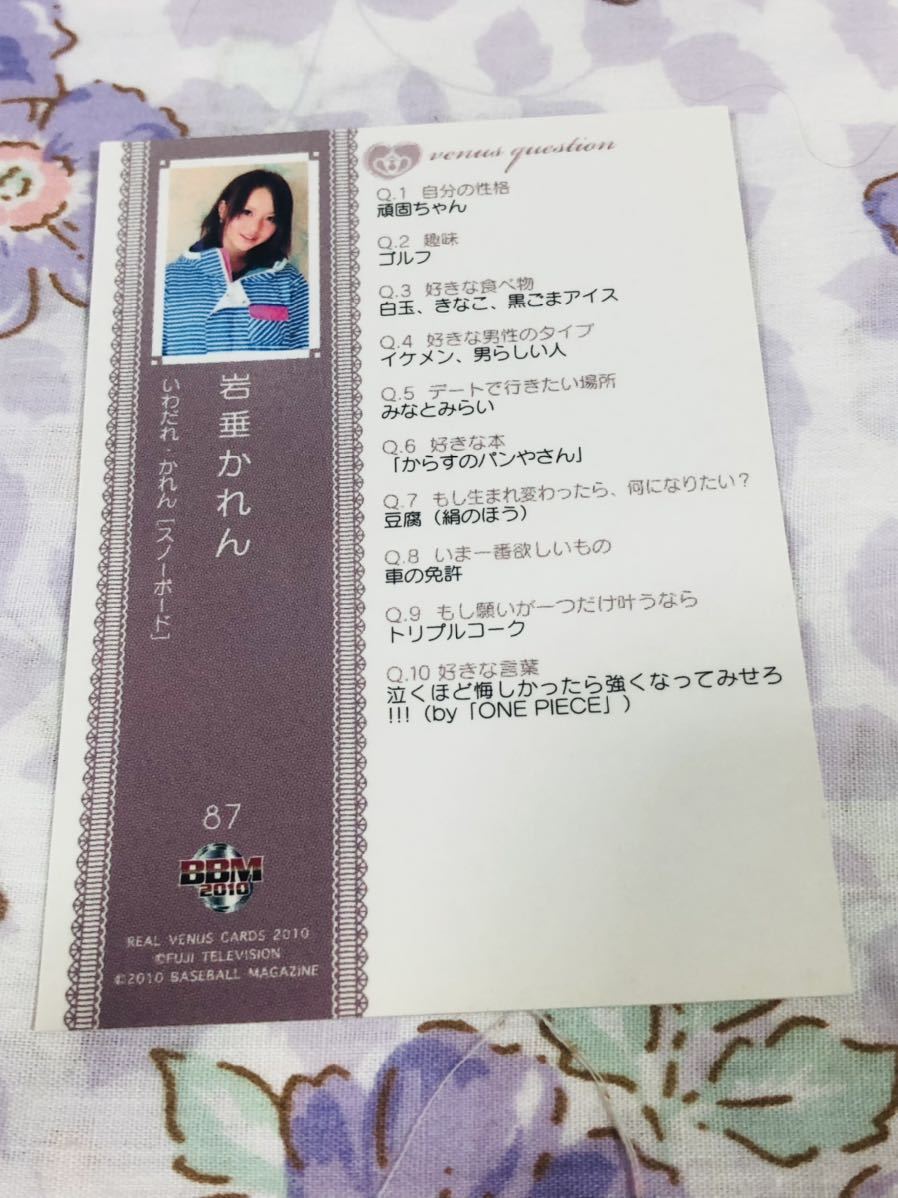 venus question
Q.1 自分の性格
頑固ちゃん
Q.2 趣味
ゴルフ
Q.3 好きな食べ物
白玉、きなこ、黒ごまアイス
Q.4 好きな男性のタイプ
イケメン、男らしい人
Q.5 デートで行きたい場所
みなとみらい
Q.6 好きな本
「からすのパンやさん」
Q.7 もし生まれ変わったら、何になりたい？
豆腐（絹のほう）
Q.8 いま一番欲しいもの
車の免許
Q.9 もし願いが一つだけ叶うなら
トリプルコーク
Q.10 好きな言葉
泣くほど悔しかったら強くなってみせろ
!!!（by「ONE PIECE」）
岩垂かれん
いわだれ・かれん［スノーボード］
87
BBM
2010
REAL VENUS CARDS 2010
©FUJI TELEVISION
©2010 BASEBALL MAGAZINE